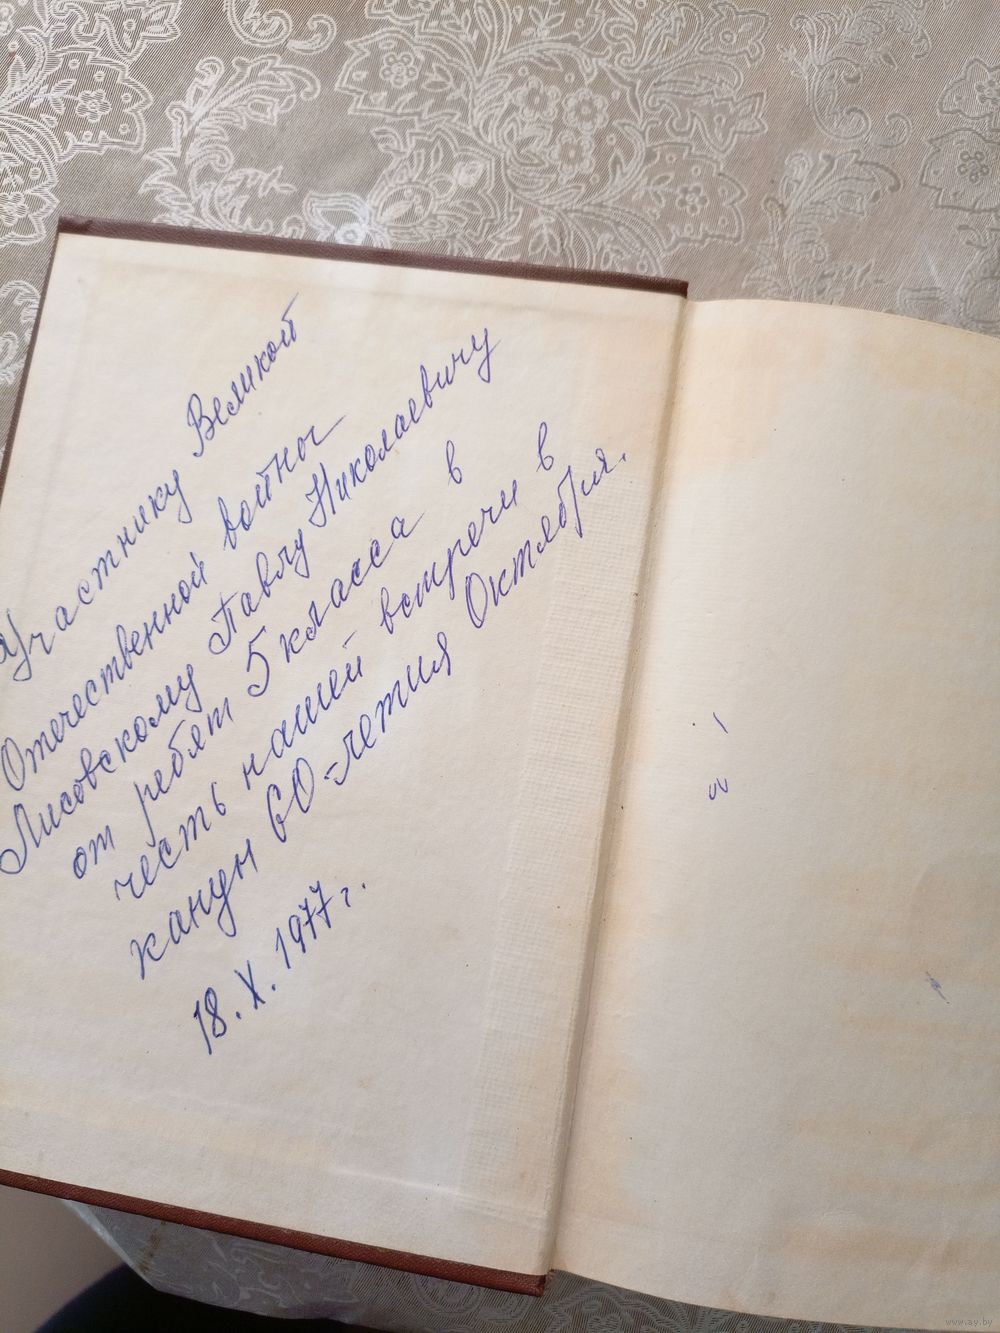 Участнику Великой
Отечественной войны
Лисовскому Павлу Николаевичу
от ребят 5 класса в
честь нашей встречи в
канун 60-летия Октября.
18. X. 1977 г.
www.ay.by